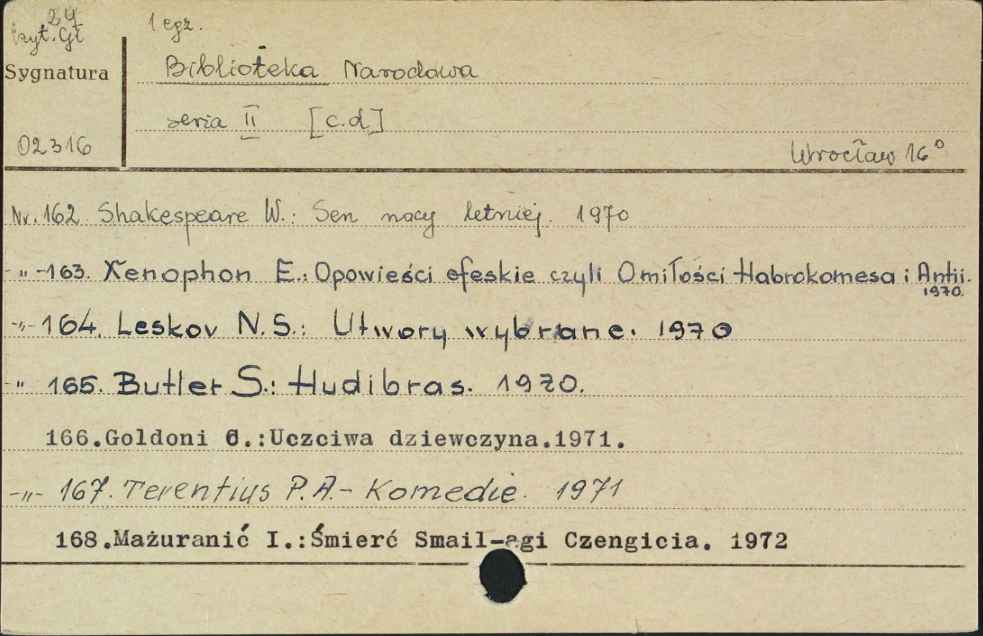 24
Czyt. Gł
1 egz.
Sygnatura
Biblioteka Narodowa
seria II [c.d]
02316
Wrocław 16°
Nr. 162. Shakespeare W.: Sen nocy letniej. 1970
-"-163. Xenophon E.: Opowieści efeskie czyli O miłości Habrokomesa i Antii.
1970.
-"- 164. Leskov N.S.: Utwory wybrane. 1970
-" 165. Butler S.: Hudibras. 1970.
166.Goldoni C.:Uczciwa dziewczyna.1971.
-"- 167. Terentius P.A.- Komedie. 1971
168.Mażuranić I.:Śmierć Smail-agi Czengicia. 1972